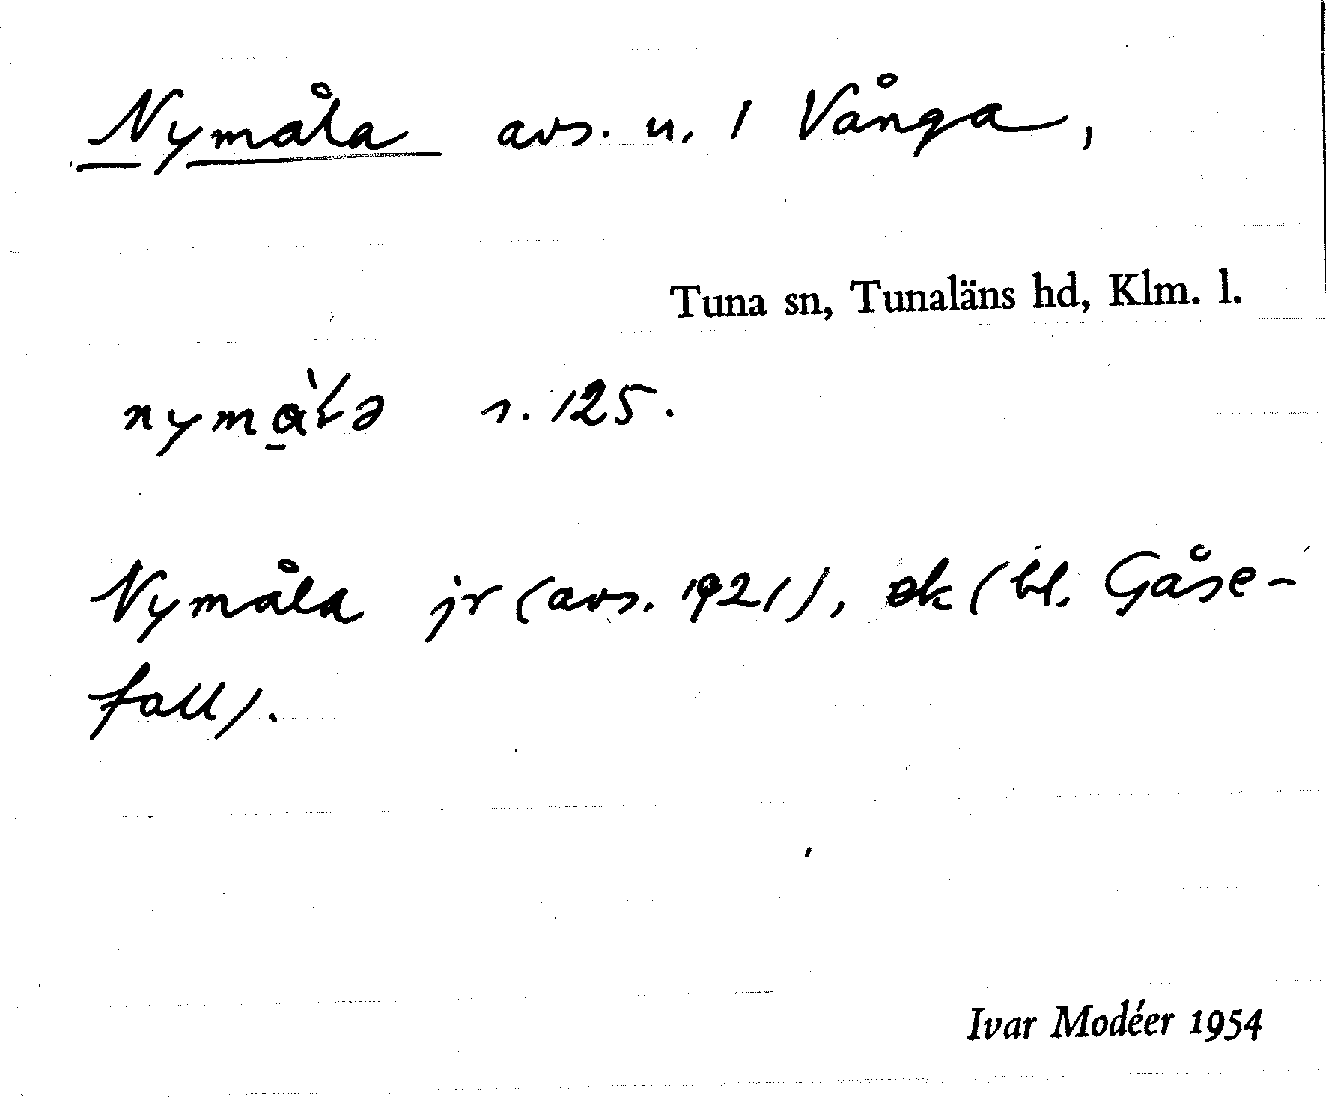 Nymåla avs. u. 1 Vånga,
Tuna sn, Tunaläns hd, Klm. l.
s. 125.
Nymåla jr (avs. 1921), ek (bl. Gåse-
fall).
Ivar Modéer 1954